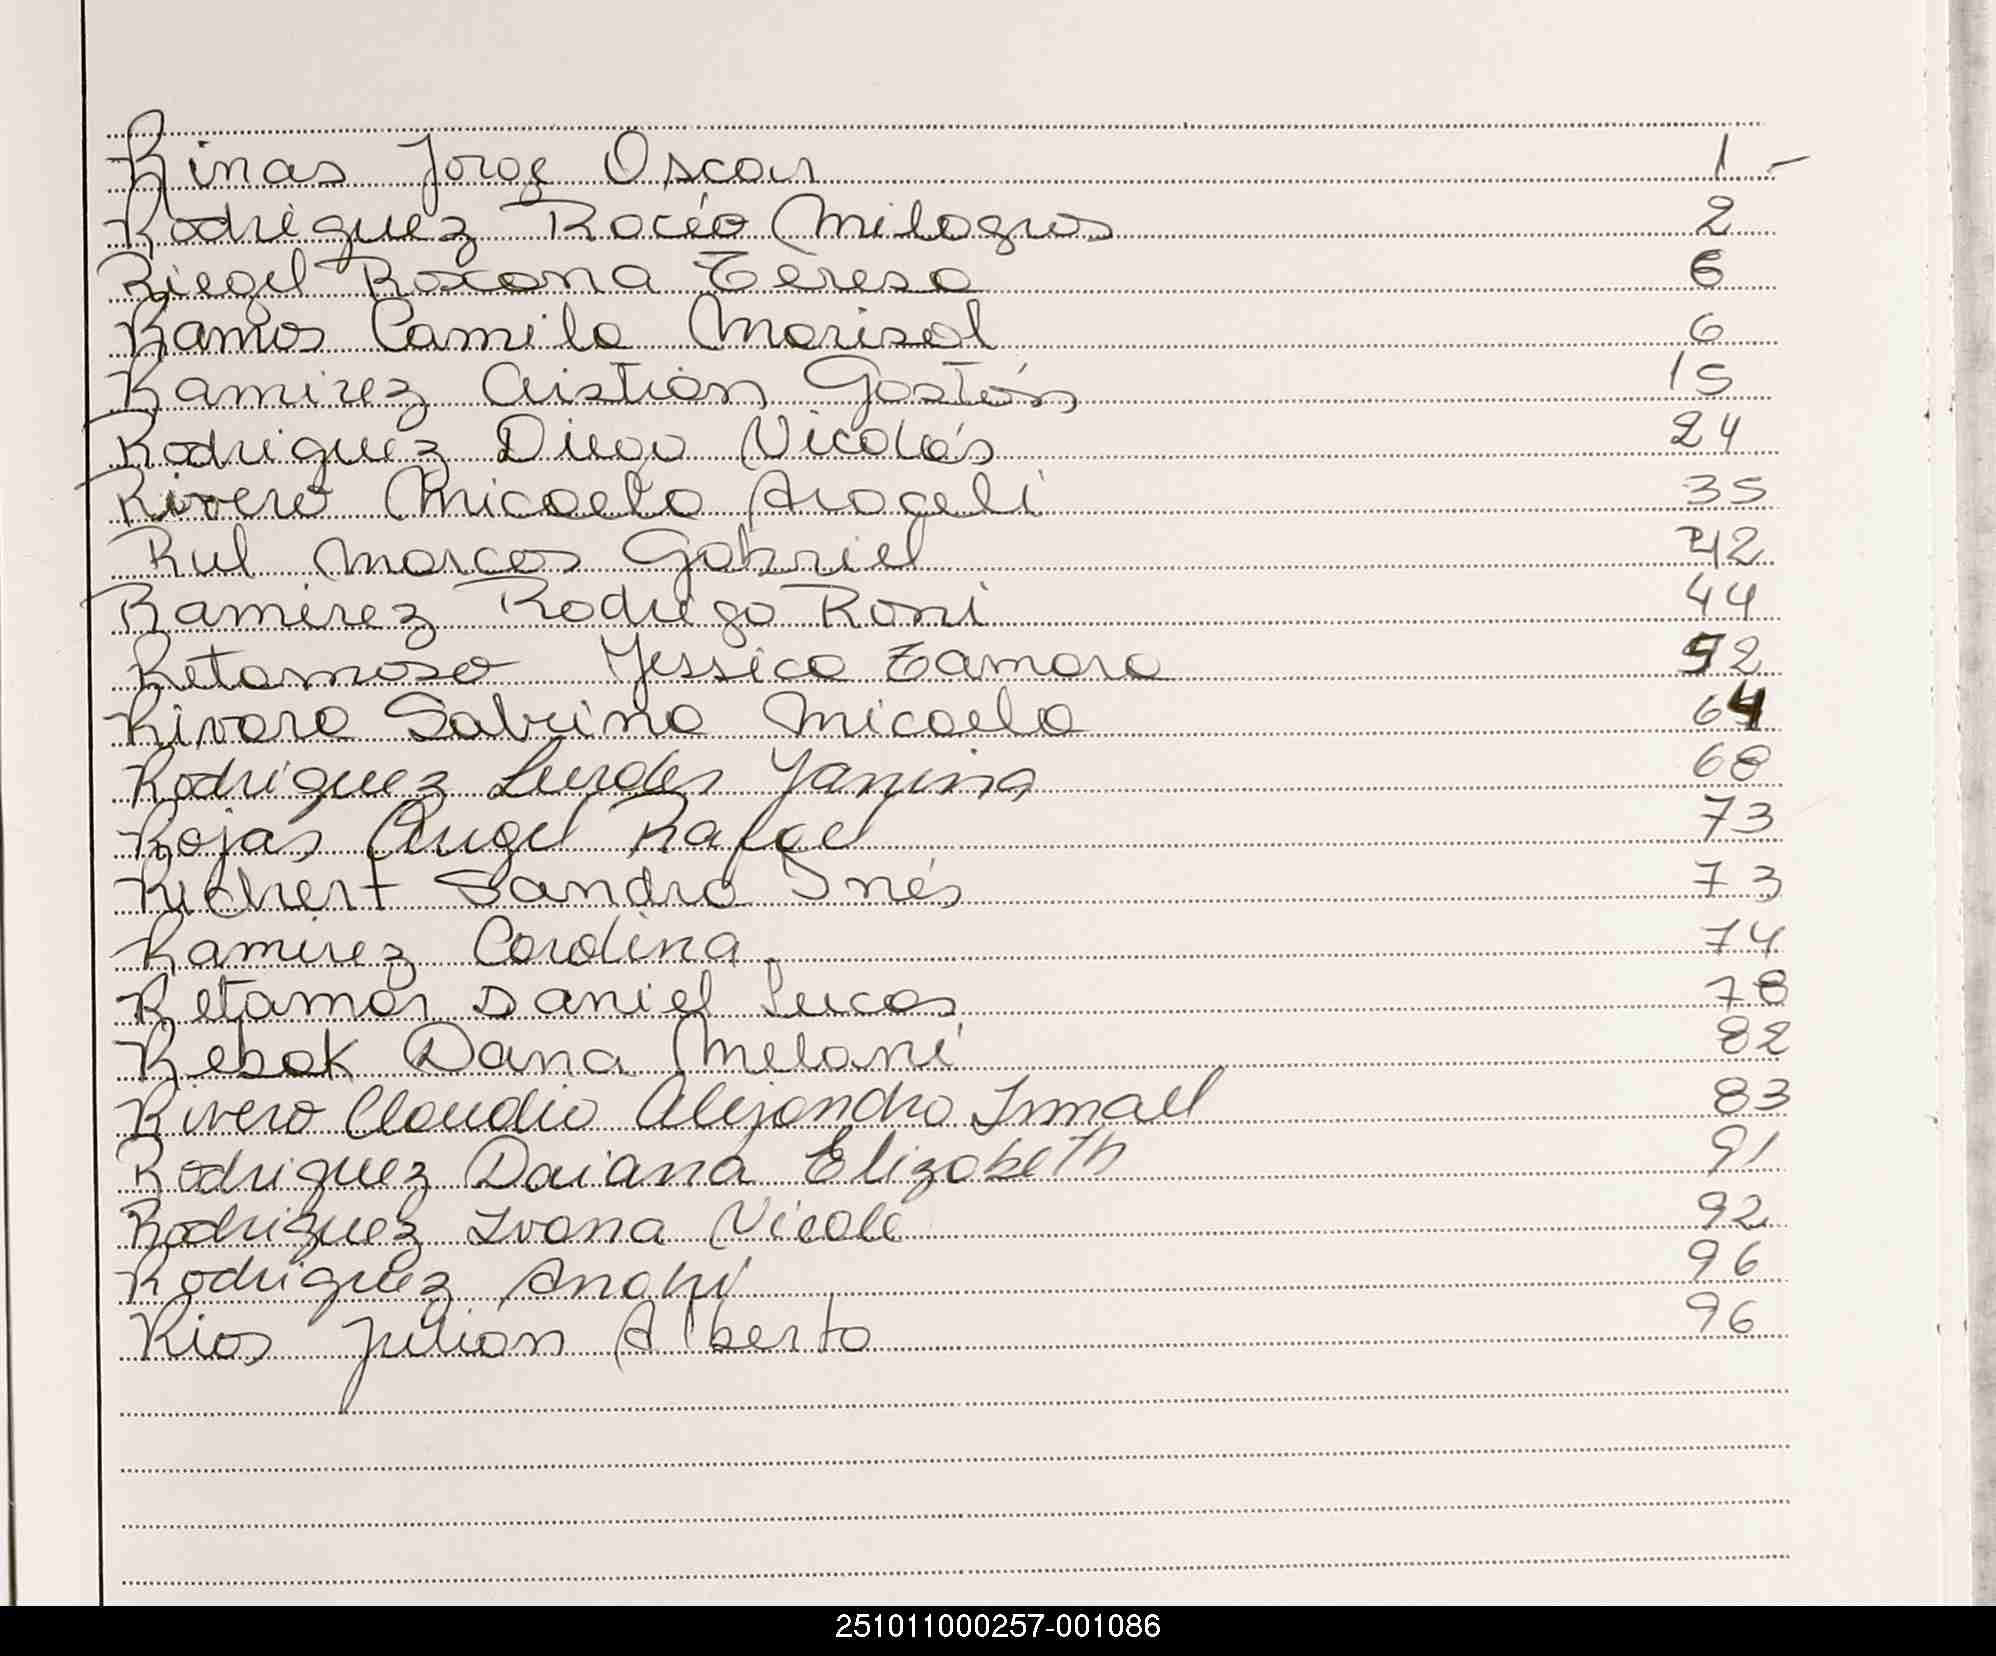 Rinas Jorge Oscar 1.-
Rodriguez Rocío Milagros 2
Riegel Roxana Teresa 6
Ramos Camila Marisol 6
Ramirez Cristian Gastón 15
Rodriguez Diego Nicolás 24
Rivero Micaela Araceli 35
Rul Marcos Gabriel 42
Ramirez Rodrigo Roni 44
Retamoso Yessica Tamara 52
Rivara Sabrina Micaela 64
Rodriguez Lurdes Yanina 68
Rojas Angel Rafael 73
Richert Sandra Inés 73
Ramirez Carolina 74
Retamar Daniel Lucas 78
Rebok Dana Melani 82
Rivero Claudio Alejandro Ismael 83
Rodriguez Daiana Elizabeth 91
Rodriguez Ivana Nicole 92
Rodriguez Anahí 96
Rios Julian Alberto 96
251011000257-001086